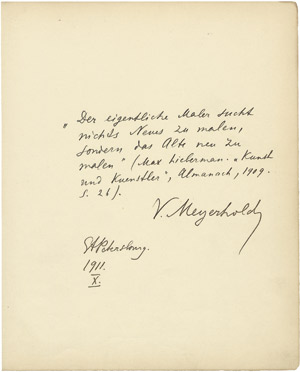 „Der eigentliche Maler sucht
nichts Neues zu malen,
sondern das Alte neu zu
malen" (Max Lieberman. „Kunst
und Kuenstler", Almanach, 1909.
S. 26).
V. Meyerhold
St Petersburg.
1911.
X.